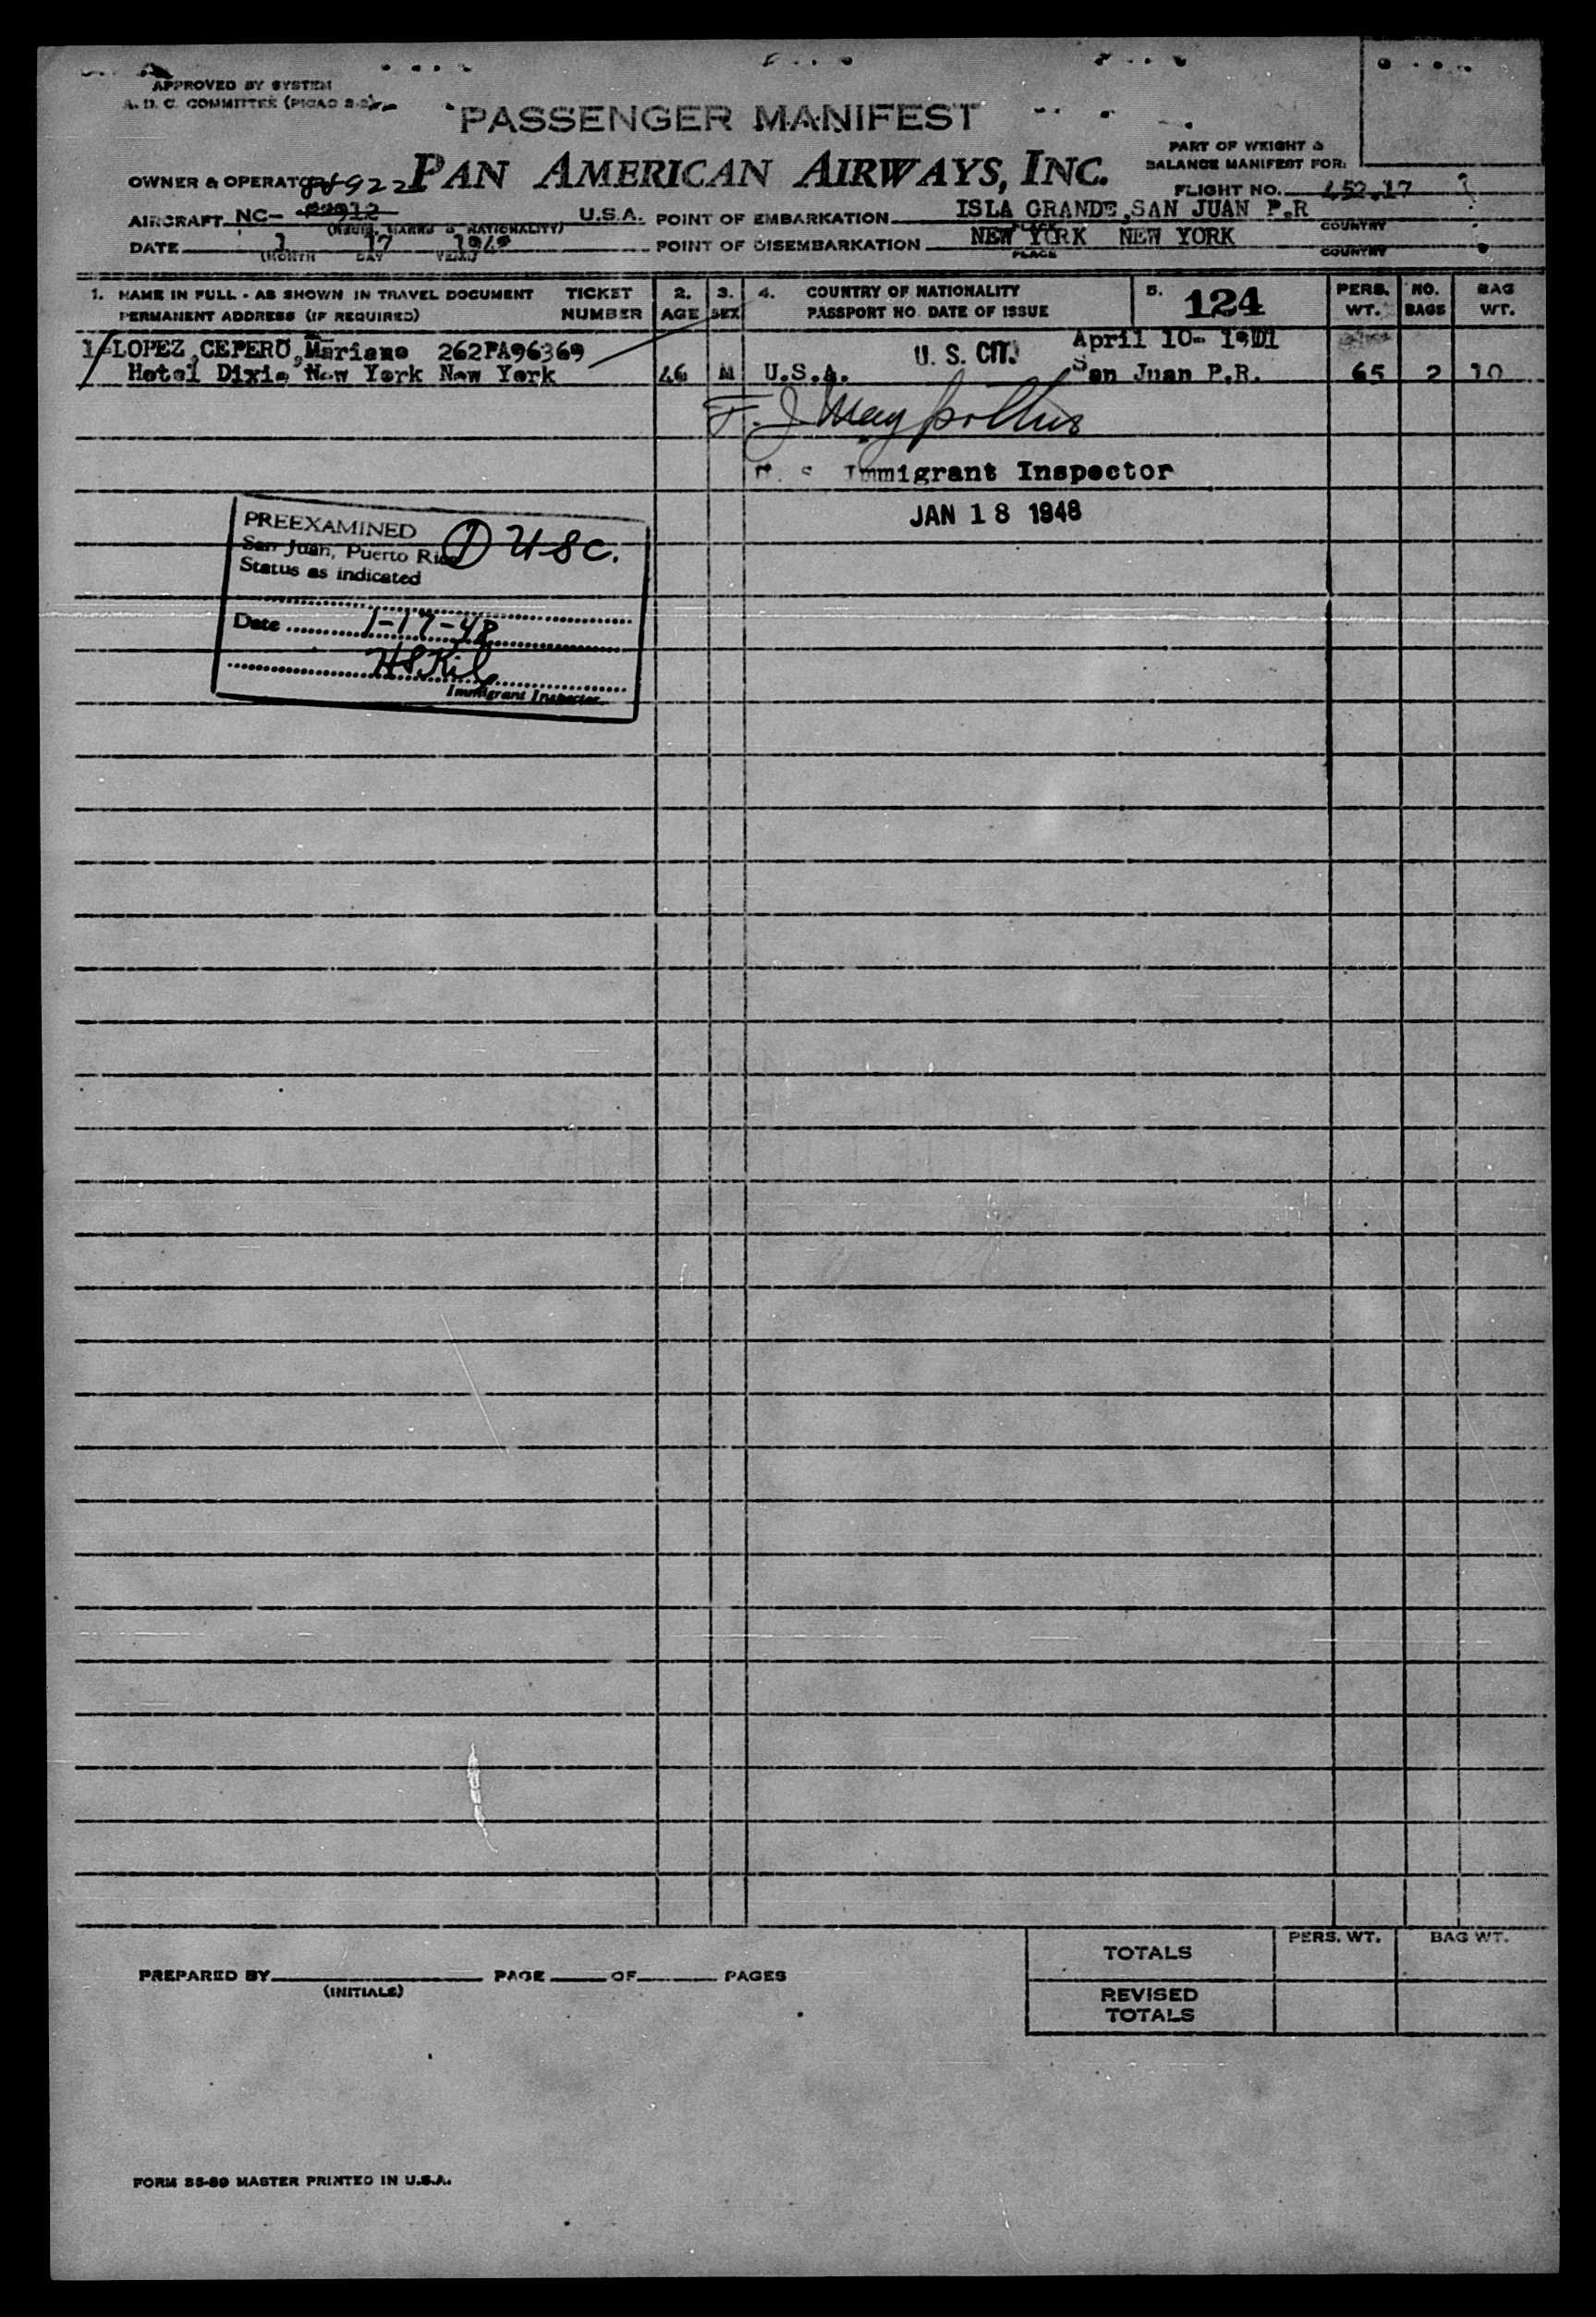 APPROVED BY SYSTEM
A. D. C. COMMITTEE (PICAO 2-2)
PASSENGER MANIFEST
PART OF WEIGHT &
BALANCE MANIFEST FOR:
OWNER & OPERATOR PAN AMERICAN AIRWAYS, INC.
FLIGHT NO. 452.17
88922
AIRCRAFT NC- U.S.A. POINT OF EMBARKATION ISLA GRANDE, SAN JUAN P.R
(REGIS. MARKS & NATIONALITY) PLACE COUNTRY
DATE 1 17 1948 POINT OF DISEMBARKATION NEW YORK NEW YORK
(MONTH DAY YEAR) PLACE COUNTRY
1. NAME IN FULL - AS SHOWN IN TRAVEL DOCUMENT TICKET 2. 3. 4. COUNTRY OF NATIONALITY 5. 124 PERS. NO. BAG
PERMANENT ADDRESS (IF REQUIRED) NUMBER AGE SEX PASSPORT NO. DATE OF ISSUE WT. BAGS WT.
1-LOPEZ, CEPERO, Mariano 262PA96369 U. S. CIT. April 10- 1901
Hotel Dixie New York New York 46 M U.S.A. San Juan P.R. 65 2 10
U. S. Immigrant Inspector
JAN 18 1948
PREEXAMINED
San Juan, Puerto Rico
Status as indicated
① USC.
Date 1-17-48
Immigrant Inspector
TOTALS PERS. WT. BAG WT.
PREPARED BY PAGE OF PAGES
(INITIALS)
REVISED
TOTALS
FORM 35-89 MASTER PRINTED IN U.S.A.